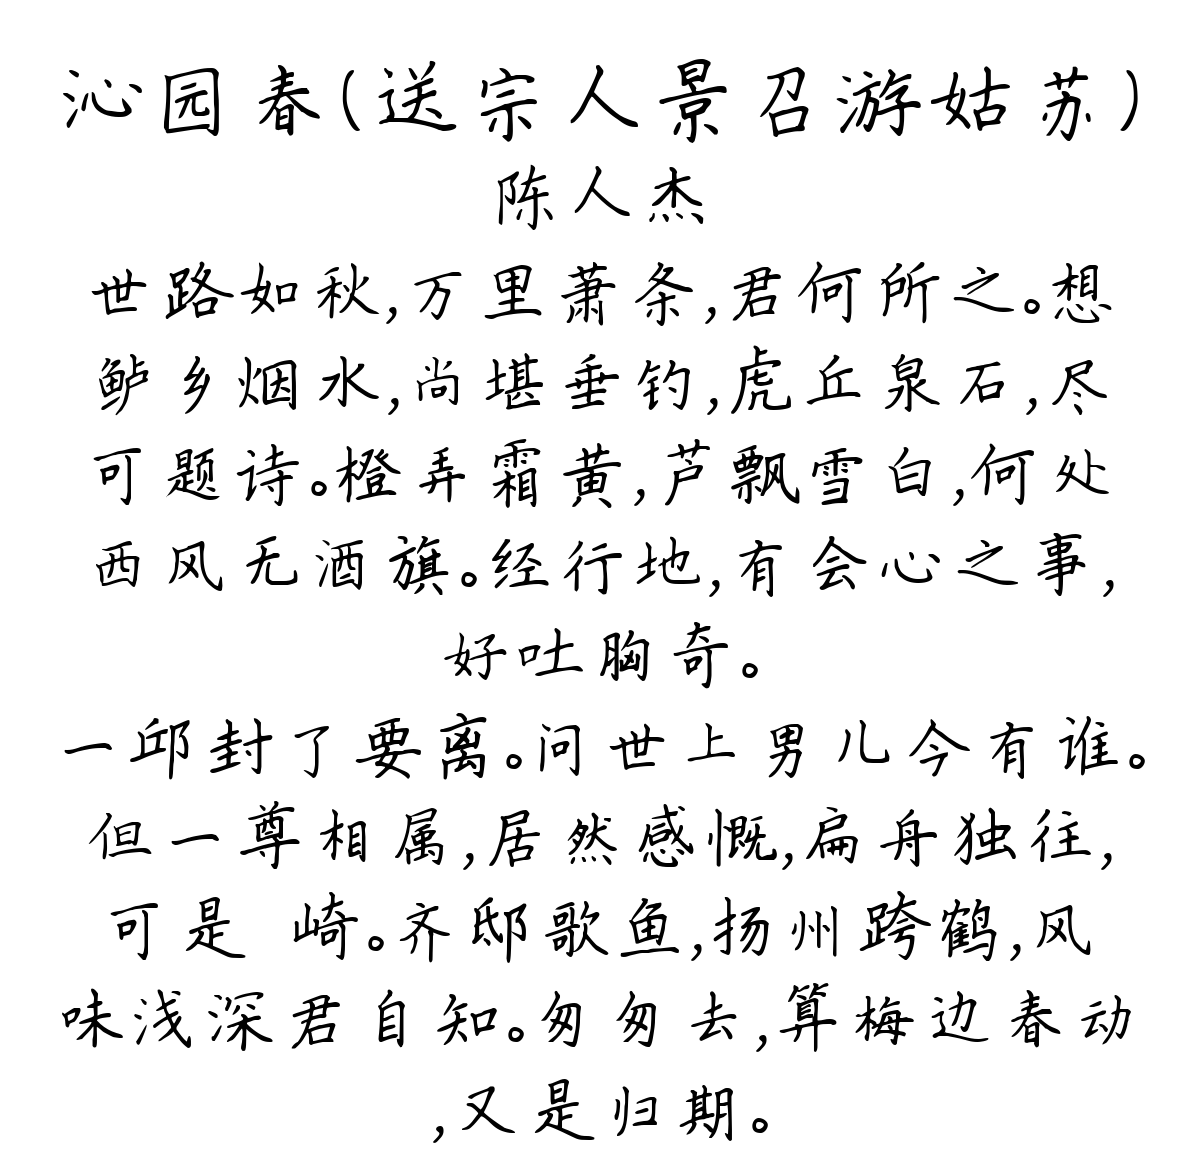 沁园春(送宗人景召游姑苏)
陈人杰
世路如秋,万里萧条,君何所之。想
鲈乡烟水,尚堪垂钓,虎丘泉石,尽
可题诗。橙弄霜黄,芦飘雪白,何处
西风无酒旗。经行地,有会心之事,
好吐胸奇。
一邱封了要离。问世上男儿今有谁。
但一尊相属,居然感慨,扁舟独往,
可是 崎。齐邸歌鱼,扬州跨鹤,风
味浅深君自知。匆匆去,算梅边春动
,又是归期。